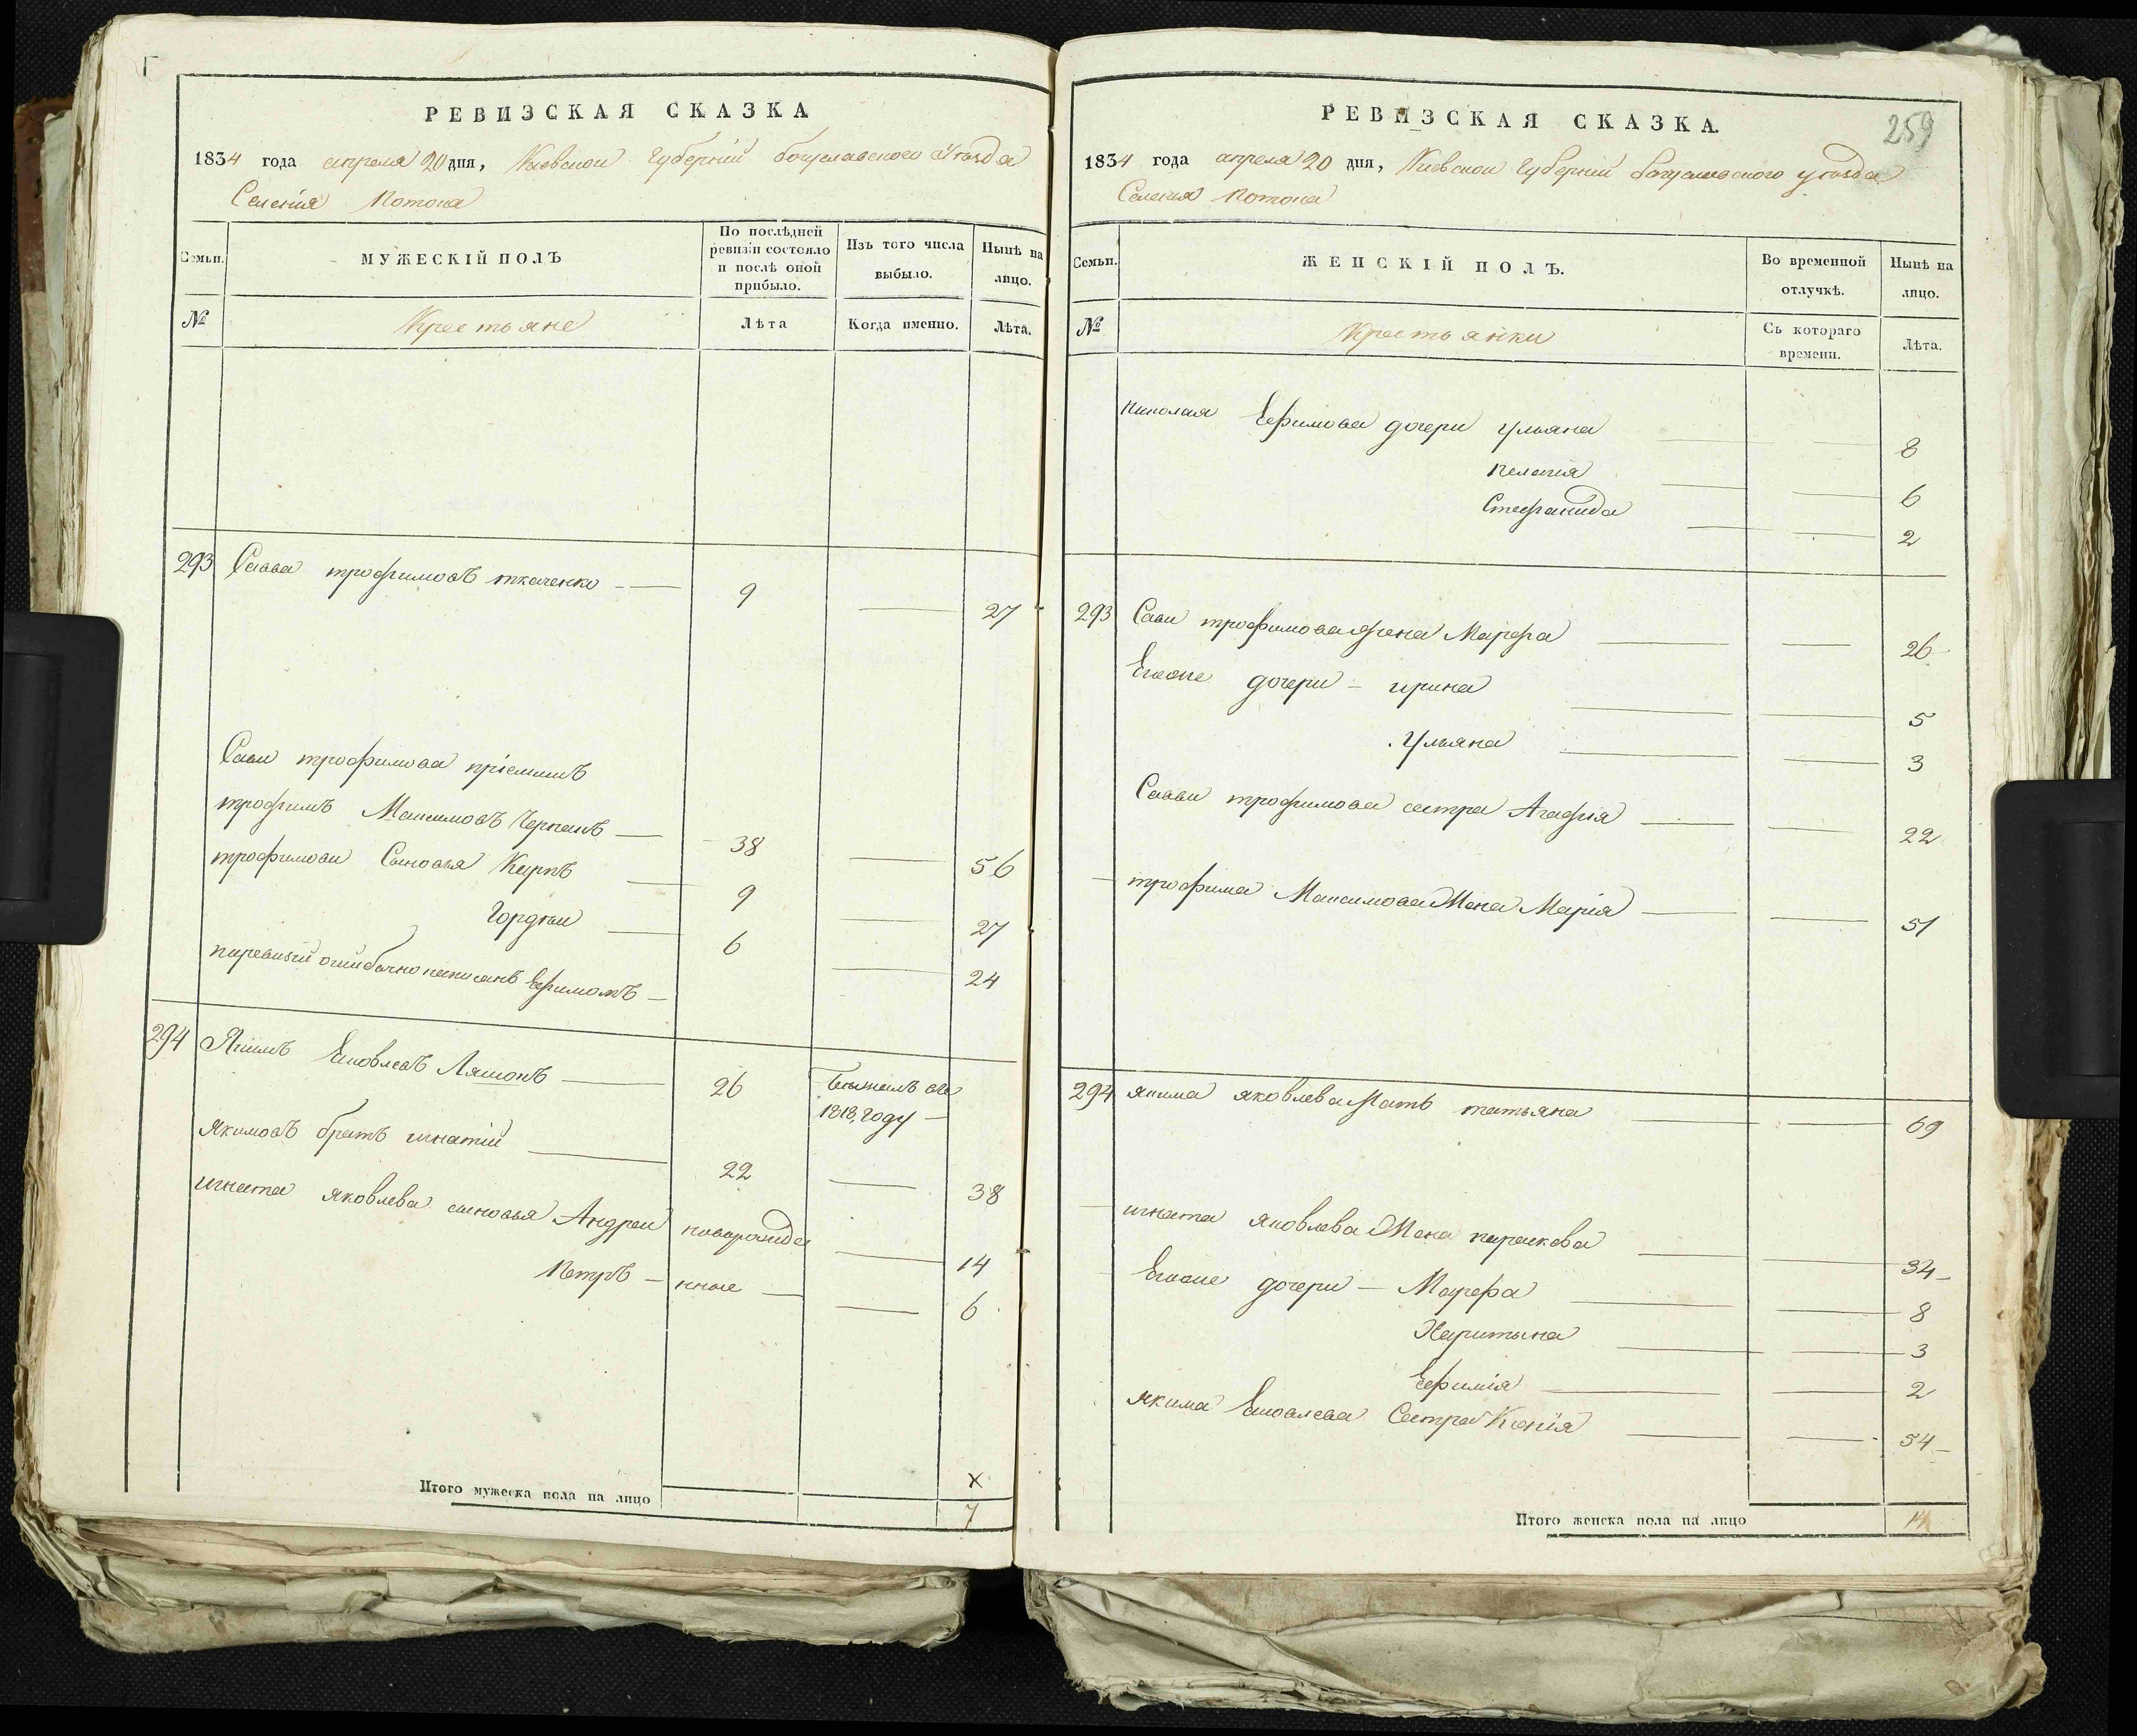 РЕВИЗСКАЯ СКАЗКА
1834 года апреля 20 дня, Киевской Губерніи богуславского Уезда
Селенія Потока
Семьи. МУЖЕСКІЙ ПОЛЪ По послѣдней ревизіи состояло и послѣ оной прибыло. Изъ того числа выбыло. Нынѣ на лицо.
№ Крестьяне Лѣта Когда именно. Лѣта.
293 Савва трофимовъ ткаченко 9 27
Савы трофимова пріемышъ
трофимъ Максимовъ 38 56
трофимовы Сыновья Карпъ 9 27
Гордѣй 6 24
поревизіи ошибочно написанъ Ефимомъ
294 Якимъ Яковлевъ Ляшокъ 26 1818, году
Якимовъ братъ игнатій 22 38
игната яковлева сыновья Андрей новорожде 14
Петръ нные 6
Итого мужеска пола на лицо 7
РЕВИЗСКАЯ СКАЗКА.
259
1834 года апреля 20 дня, Киевской Губерніи богуславского уезда
Селенія Потока
Семьи. ЖЕНСКІЙ ПОЛЪ. Во временной отлучкѣ. Нынѣ на лицо.
№ Крестьянки Съ котораго времени. Лѣта.
Николая Ефимова дочери ульяна 8
Пелагія 6
Стефанида 2
293 Савы трофимова жена Марфа 26
Егоже дочери ирина 5
Ульяна 3
Саввы трофимова сестра Агафія 22
трофима Максимова Жена Марія 51
294 якима яковлева Мать татьяна 69
игната яковлева Жена параскева 34
Егоже дочери Марфа 8
Харитына 3
Ефимія 2
якима Яковлева Сестра Ксенія 54
Итого женска пола на лицо 14